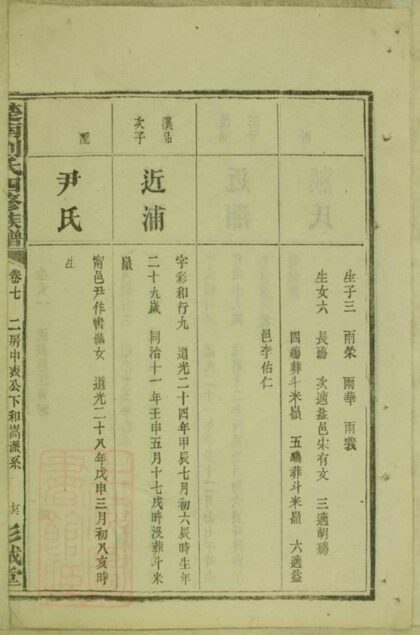 生子三 雨榮 雨華 雨羲
生女六 長殤 次適益邑宋有文 三適胡殤
四殤葬斗米嶺 五殤葬斗米嶺 六適益
邑李佑仁
次子
近浦
字彩和行九 道光二十四年甲辰七月初六辰時生年
二十九歲 同治十一年壬申五月十七戌時沒葬斗米
嶺
配
尹氏
甯邑尹作書 女 道光二十八年戊申三月初八亥時
生
楚南劉氏四修族譜 卷七 二房中表公下和嵩派系 彭城堂